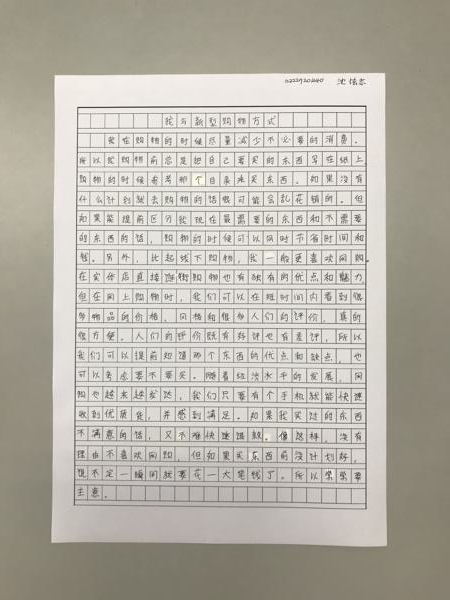 沈信志
我与新型购物方式
我在购物的时候尽量减少不必要的消费。
所以我购物前总是把自己要买的东西写在纸上,
购物的时候看着那个目录来买东西。如果没有
什么计划就去购物的话很可能会乱花钱的。但
如果能提前区分我现在最需要的东西和不需要
的东西的话,购物的时候可以同时节省时间和
钱。另外,比起线下购物,我一般更喜欢网购。
在实体店直接逛街购物也有独有的优点和魅力,
但在网上购物时,我们可以在短时间内看到很
多物品的价格、风格和很多人们的评价,真的
很方便。人们的评价既有好评也有差评,所以
我们可以提前知道那个东西的优点和缺点,也
可以考虑要不要买。随着经济水平的发展,网
购也越来越发达,我们只要有个手机就能快速
收到优质货,并感到满足。如果我买过的东西
不满意的话,又不难快速退款。像这样,没有
理由不喜欢网购,但如果买东西前没计划好,
说不定一瞬间就要花一大笔钱了。所以常常要
注意。